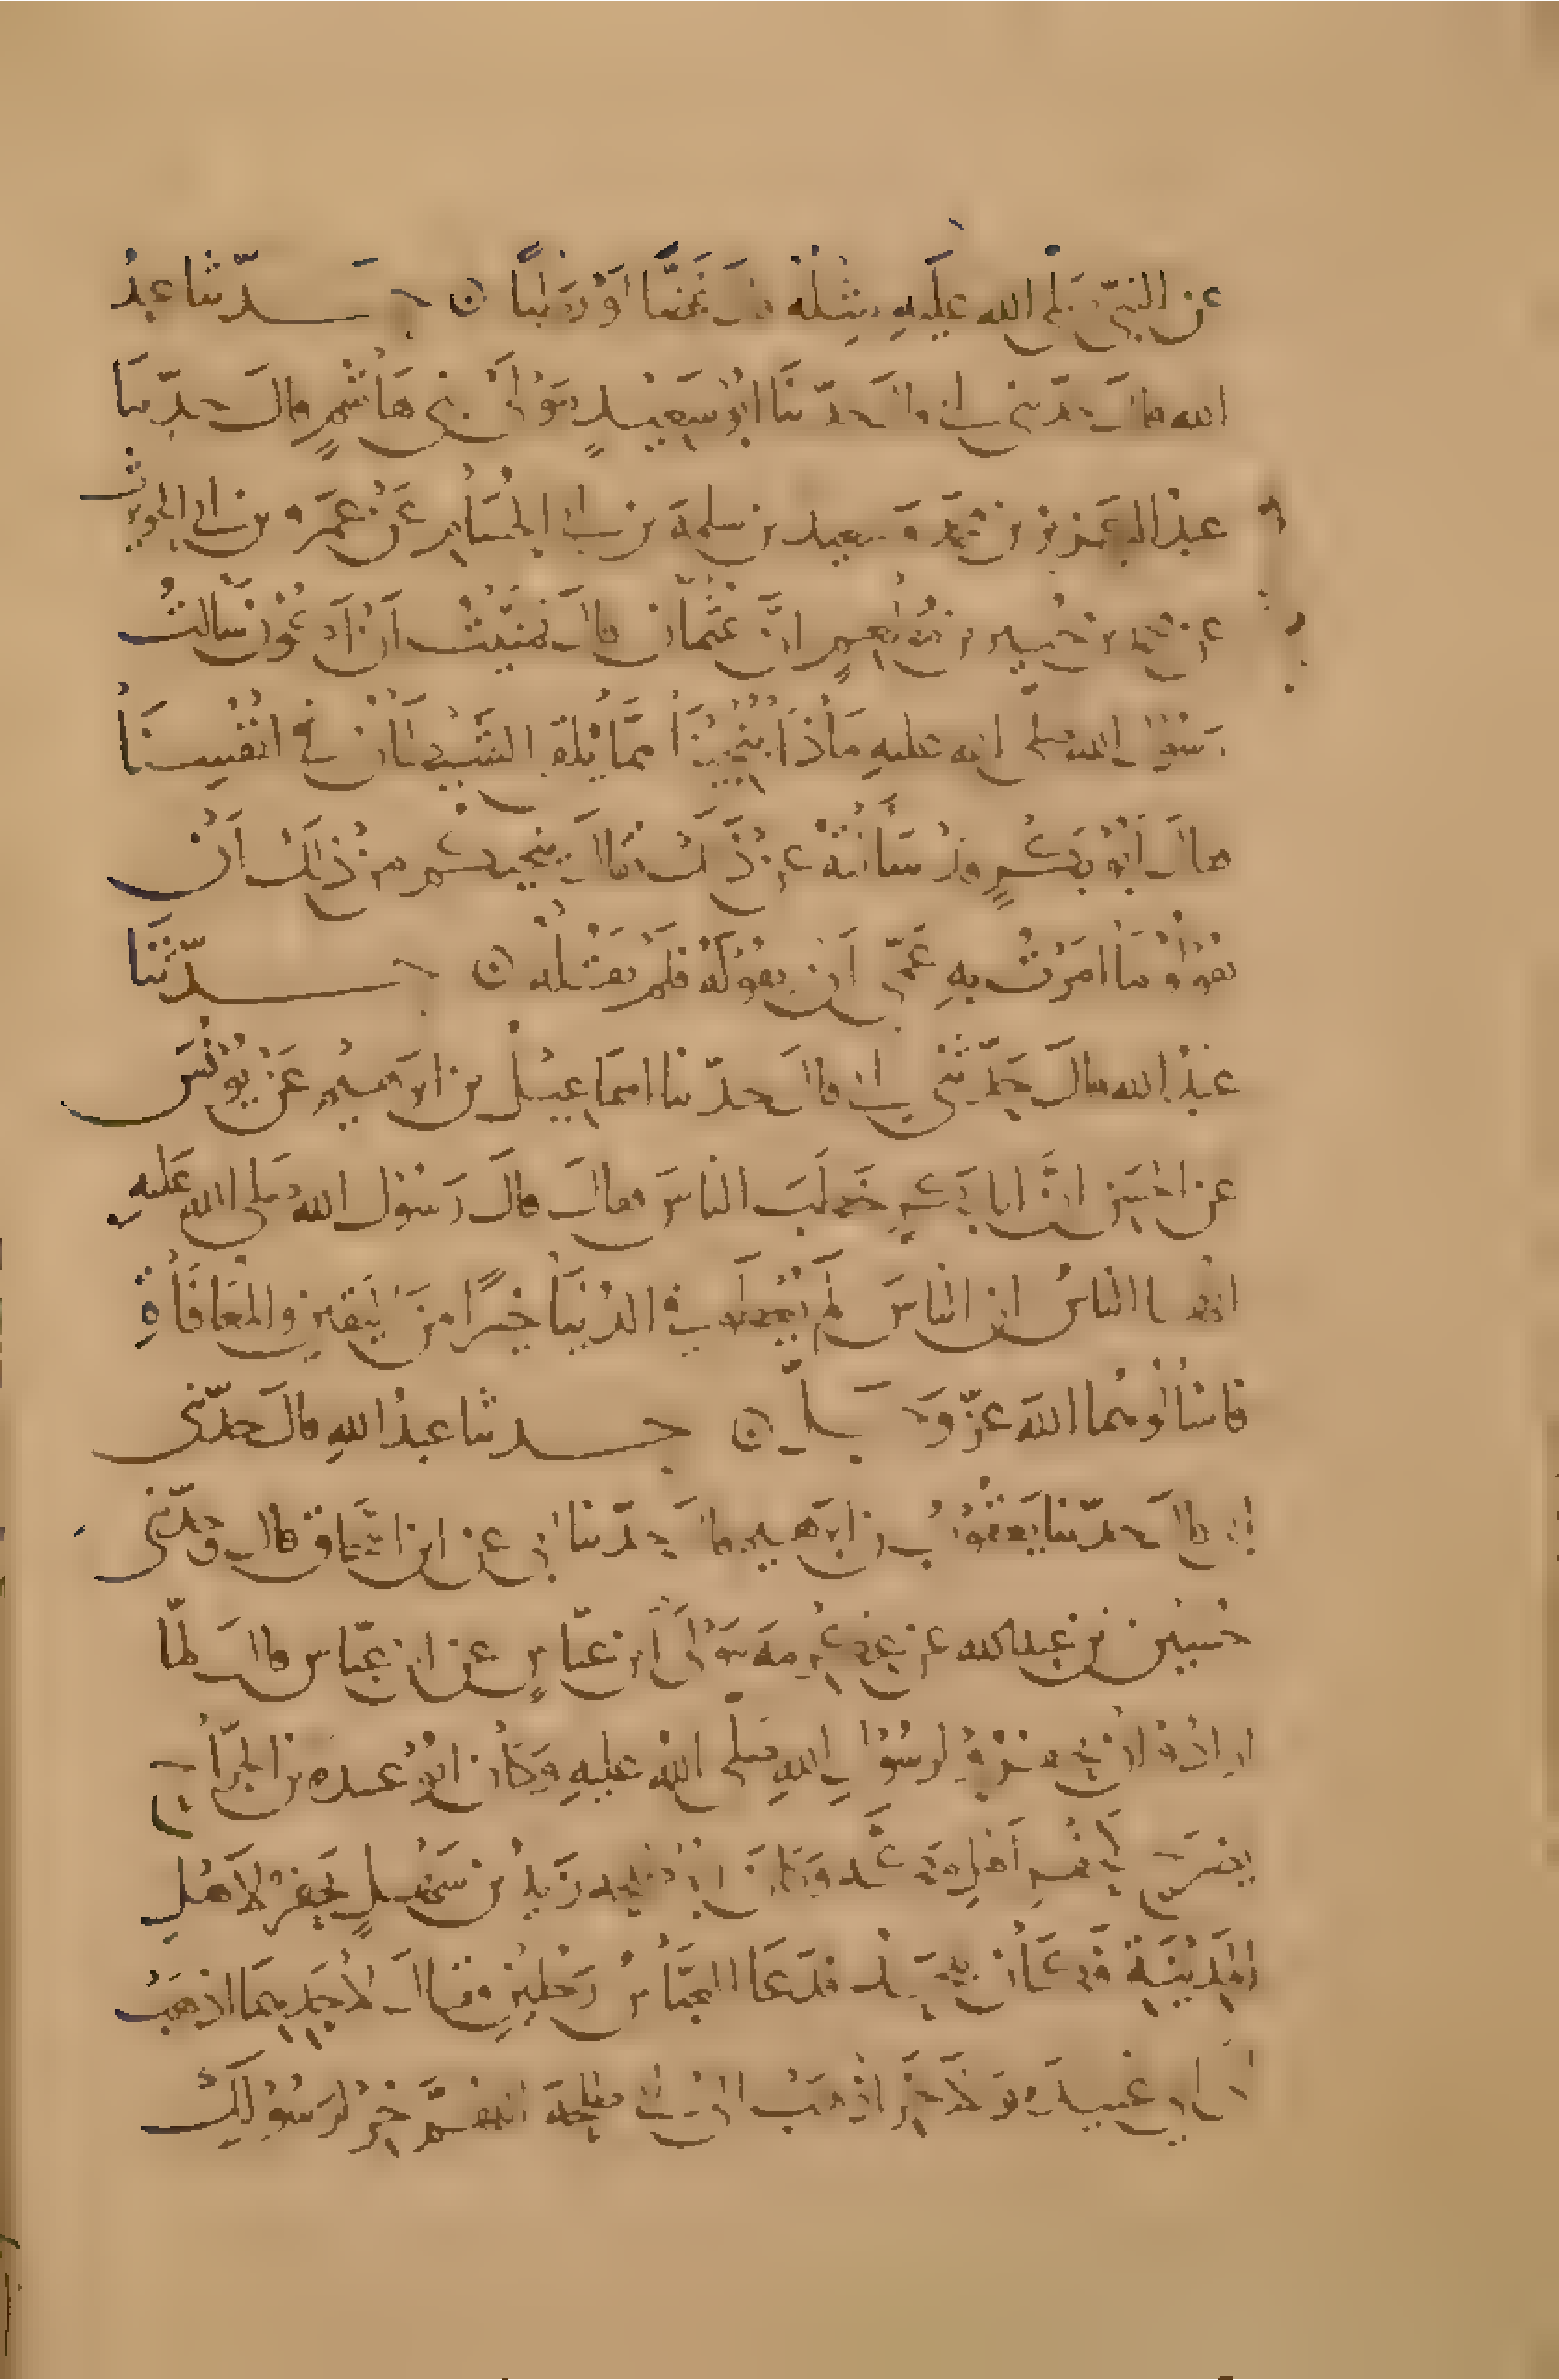 عن النبيّ صلى الله عليه مثله قال غضًّا أو رطبًا ن حدّثنا عبد
الله قال حدّثني أبي قال حدّثنا أبو سَعِيدٍ مَوْلَى بَنِي هَاشِمٍ قال حدّثنا
عبد العزيز بن محمد وسعيد بن سلمة بن أبي الحُسَام عَنْ عَمْرو بن أبي
عن محمد بن جبير بن مُطْعِمٍ انَّ عُثْمَان قال تمنَّيْتُ أَنْ أَكُونَ سَالتُ
رسُول الله صلى الله عليه مَاذَا يُنْجِينَا مِمَّا يُلْقِي الشَّيْطَانُ في انْفُسِنَا
فقال أَبُو بَكْرٍ قد سَأَلتُهُ عن ذَلِكَ فقال ينجيكم من ذلك أن
تقولوا مَا امَرْتُ بِهِ عَمِّي أَن يقُولَهُ فلَمْ يَقُلْهُ ن حدّثَنَا
عبدُ الله قال حَدّثني أبي قال حدّثنا اسماعِيل بن ابرَهيمُ عَنْ يُونُسَ
عن الحسَن انَّ ابا بَكرٍ خَطَبَ الناسَ فقال قال رَسُول الله صَلى الله عَليهِ
ايها الناسُ ان الناسَ لم يُعْطَوا في الدُنيَا خَيرًا مِنَ اليَقين والمُعَافَاةِ
فاسْألُوهُما اللهَ عزّ وَجَلّ ن حدثنا عبدُ اللهِ قال حدّثني
أبي قال حدّثنا يَعقُوبُ بن ابرَهيم قال حدّثنا أبي عن ابن اسحاق قال وحدّثني
حُسَين بن عبد الله عن عِكْرِمَة مَوْلَى ابن عبّاسٍ عن ابن عبّاس قال لمّا
ارادُوا ان يحفروا لرسُولِ اللهِ صَلّى الله عليهِ وَكَان ابُو عبيدة بن الجرّاح
يضرَحُ كَحفرِ أهلِ مَكّة وَكانَ ابُو طلحه زَيدُ بن سَهْلٍ يَحفرُ لأهْلِ
المَدِينَةِ فَكَانَ يَلحَدُ فدَعَا العبَّاسُ رَجُلينِ فقال لأحَدِهِمَا اذهَبْ
الى ابي عُبيدَة وَللآخَر اذْهَبْ الى ابي طلحَة اللهُمَّ خِرْ لرَسُولِكَ